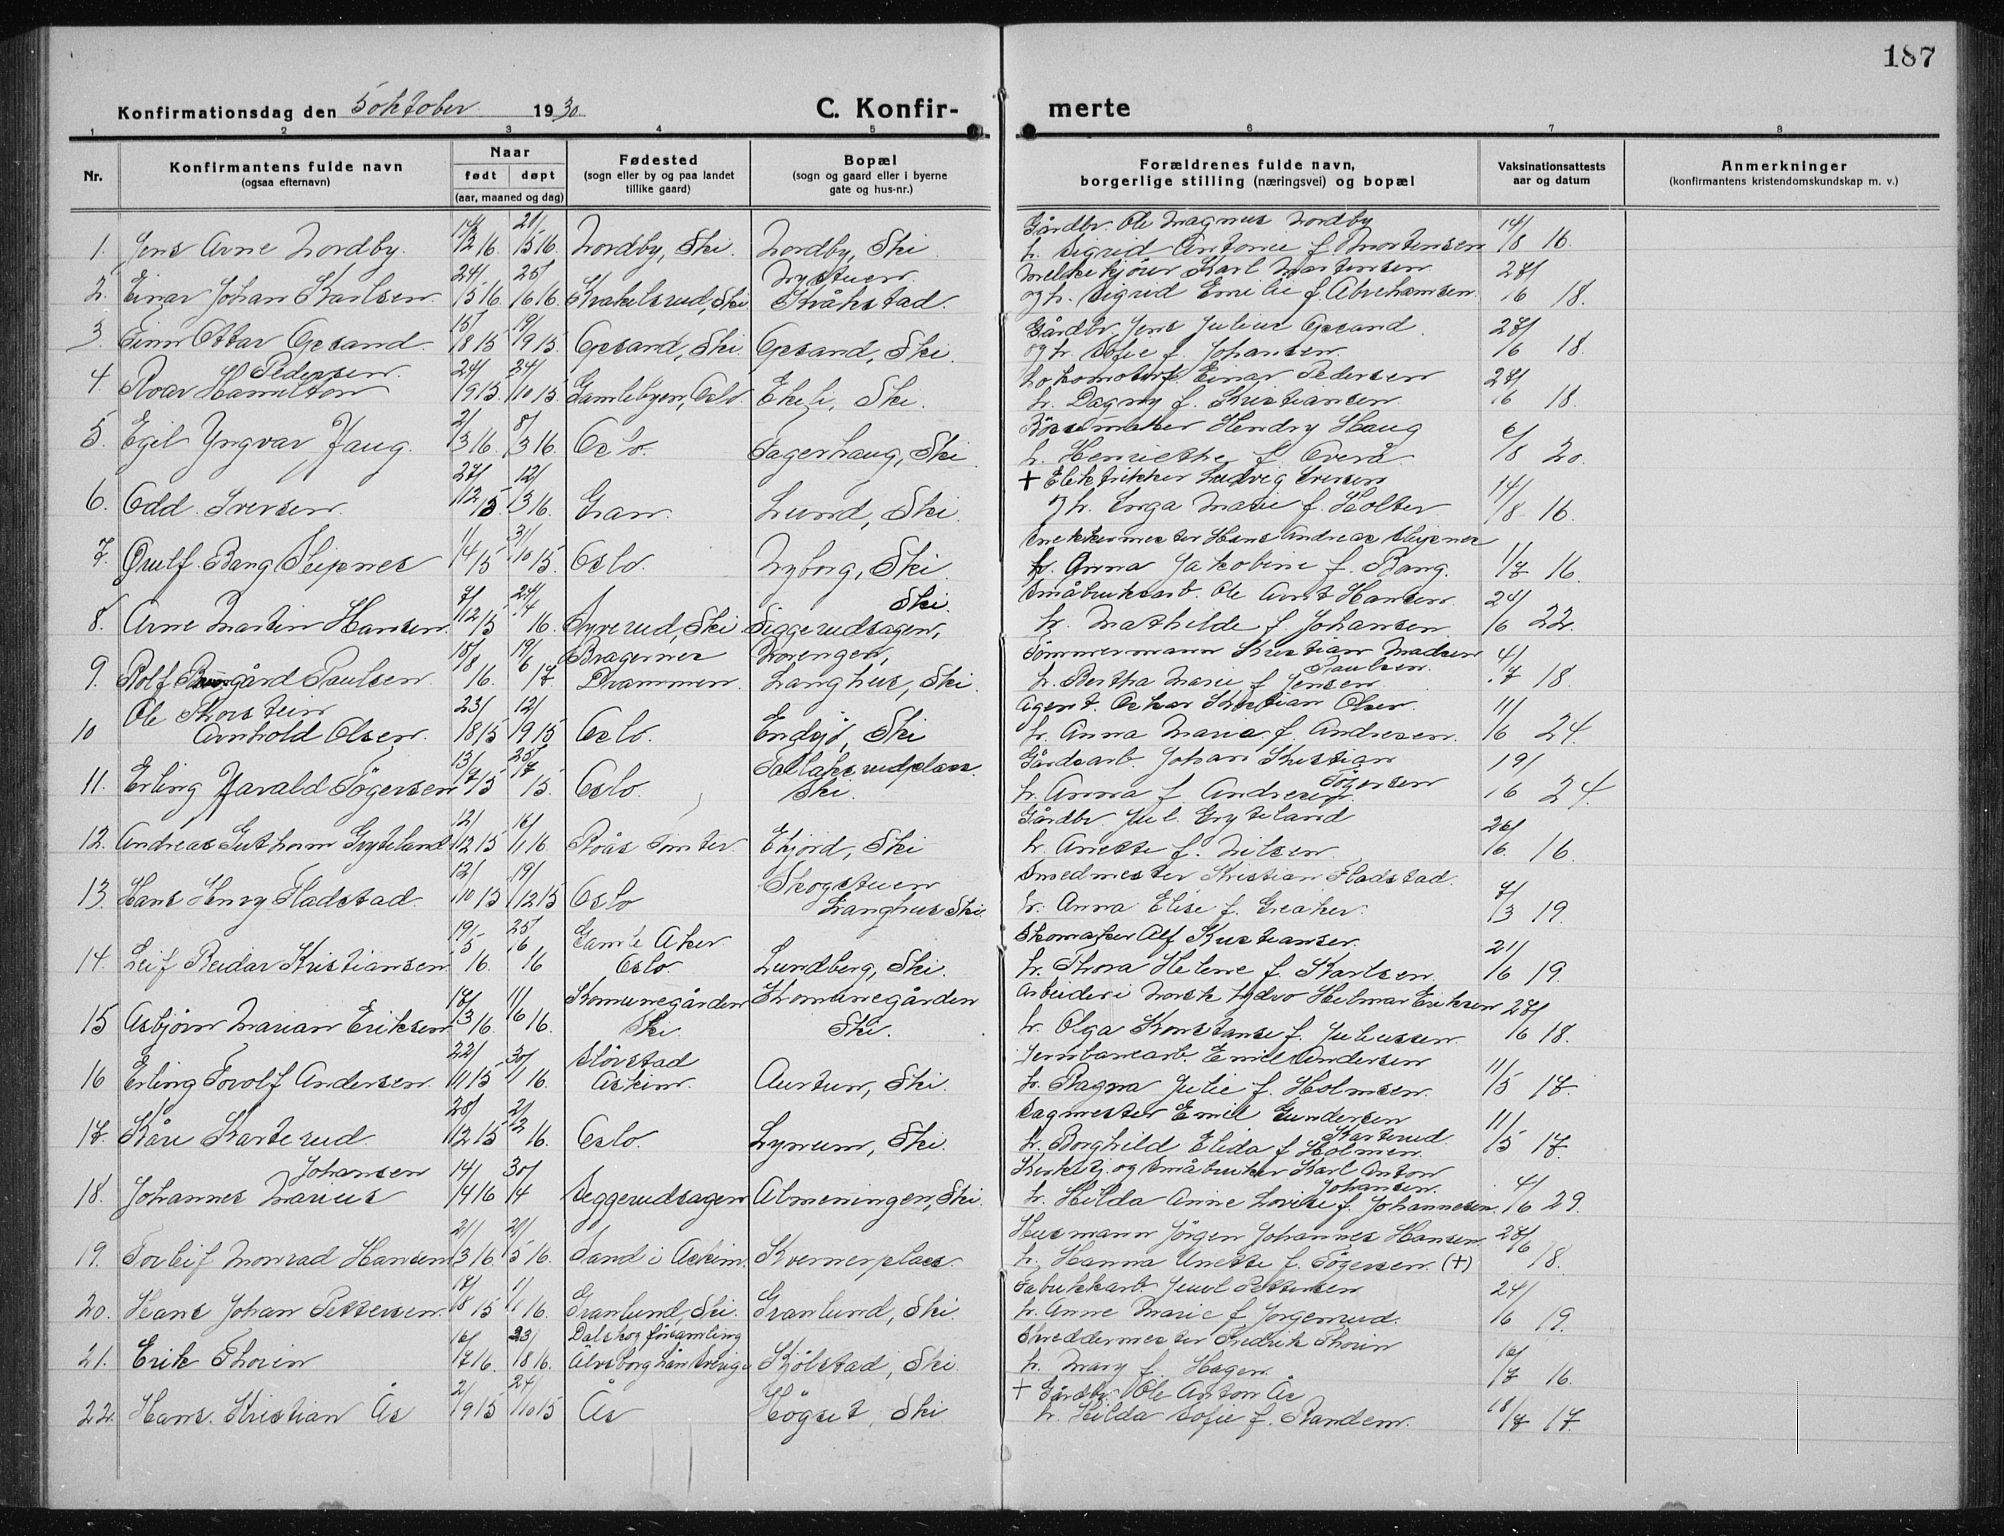 187
Konfirmationsdag den 5 oktober 1930
C. Konfir-merte
1 2 3 4 5 6 7 8
Nr.
Konfirmantens fulde navn
(ogsaa efternavn)
Naar
født døpt
(aar, maaned og dag)
Fødested
(sogn eller by og paa landet
tillike gaard)
Bopæl
(sogn og gaard eller i byerne
gate og hus-nr.)
Forældrenes fulde navn,
borgerlige stilling (næringsvei) og bopæl
Vaksinationsattests
aar og datum
Anmerkninger
(konfirmantens kristendomskundskap m. v.)
1. Jens Arne Nordby. 14/12 16. 21/5 16. Nordby, Ski Nordby, Ski. Gårdbr. Ole Magnus Nordby
h. Sigrid Antonie f. Mortensen 14/8 16.
2. Einar Johan Karlsen. 24/5 16. 25/6 16. Krakelsrud, Ski Nystuen Kråkstad. Melkekjörer Karl Martensen
og h. Sigrid Emelie f Abrahamsen. 27/6 18.
3. Finn Ottar Opsand. 15/8 15 19/9 15. Opsand, Ski Opsand, Ski. Gårdbr. Jens Julius Opsand.
og h. Sofie f. Johansen. 27/6 18.
4. Roar Hamilton Pedersen. 24/9 15 24/10 15. Gamlebyen, Oslo. Ekeli, Ski. Lokomotivf. Einar Pedersen
h. Dagny f. Kristiansen. 27/6 18.
5. Egil Yngvar Haug. 2/3 16. 5/3 16. Oslo. Fagerhaug, Ski. Börsemaker Hendry Haug
h. Henriette f. Overå. 6/8 20.
6. Odd Iversen. 27/12 15. 12/3 16. Gran. Lund, Ski. + Elektrikker Ludvig Iversen
og h. Inga Marie f. Holter 14/8 16.
7. Ørulf Bang Sleipnes 1/4 15 31/10 15. Oslo. Nyborg, Ski. Snekkermester Hans Andreas Sleipnes
h. Anna Jakobine f. Bang. 1/7 16.
8. Arne Martin Hansen. 7/12 15 24/4 16. Syverud, Ski Siggerudsagen, Ski. Småbruksarb. Ole Arnt Hansen.
h. Mathilde f. Johansen. 24/6 22.
9. Rolf Borgård Paulsen. 15/8 16. 19/6 17. Bragernes Drammen. Norengen, Langhus, Ski. Tömmermann Kristian Madsen Paulsen.
h. Bertha Marie f Jensen. 4/7 18.
10 Ole Thorstein Arnhold Olsen. 23/8 15 12/9 15 Oslo. Endsjö, Ski Agent. Oskar Kristian Olsen.
h. Anna Maria f. Andresen. 11/6 24.
11. Erling Harald Tögersen 13/7 15 25/7 15. Oslo. Tallaksrudplass. Ski. Gårdsarb. Johan Kristian Tögersen
h. Anna f Andresen. 19/6 24.
12. Andreas Guthorm Gryteland 2/12 15 16/1 16. Roås Tomter. Ekjord, Ski Gårdbr. Jul. Gryteland
h. Anette f. Nilsen. 26/6 16.
13. Hans Henry Fladstad. 12/10 15 19/12 15 Oslo Skogstuen Langhus Ski Smedmester Kristian Fladstad.
h. Anna Elise f. Greaker. 7/3 19.
14. Leif Reidar Kristiansen 19/5 16. 25/6 16 Gamle Aker Oslo. Lundberg, Ski. Skomaker Alf Kristiansen.
h. Thora Helene f. Karlsen. 21/6 19.
15 Asbjörn Marian Eriksen 18/3 16. 11/6 16. Komunegården Ski. Komunegården Ski. Arbeider i Norsk Hydro Hilmar Eriksen
h. Olga Konstanse f. Juliussen. 27/6 18.
16 Erling Torolf Andersen. 22/11 15 30/1 16. Slövstad Askim. Aurtun, Ski. Jernbanearb. Emil Andersen
h. Ragna Julie f. Holmsen. 11/5 17.
17. Kåre Karterud 28/12 15 2/2 16. Oslo. Lynum, Ski. Sagmester Emil Gundersen Karterud.
h. Borghild Elida f Holmen. 11/5 17.
18. Johannes Marius Johansen 14/4 16 30/4 Siggerudsagen Almeningen, Ski Kirketj. og småbruker Karl Anton Johansen.
h. Hilda Anne Lovise f. Johannesen. 4/6 29.
19. Torleif Monrad Hansen 2/3 16. 21/5 16. Sand i Askim. Kvernerplass. Husmann Jörgen Johannes Hansen.
h. Hanna Anette f. Tögersen. (+) 27/6 18.
20. Hans Johan Pettersen. 18/8 15 1/1 16. Granlund, Ski. Granlund, Ski. Fabrikkarb. Juul Pettersen
h. Anne Marie f Jorgenrud. 24/6 19.
21. Erik Thorin 16/7 16. 23/8 16. Dalskog församling Älvsborg Län Sverige Kjölstad, Ski. Skreddermester Fredrik Thorin
h. Mary f. Hagen. 16/7 16.
22. Hans Kristian Ås 2/9 15 24/10 15 Ås Högset, Ski + Gårdbr. Ole Anton Ås
h. Hilda Sofie f. Randem. 18/7 17.